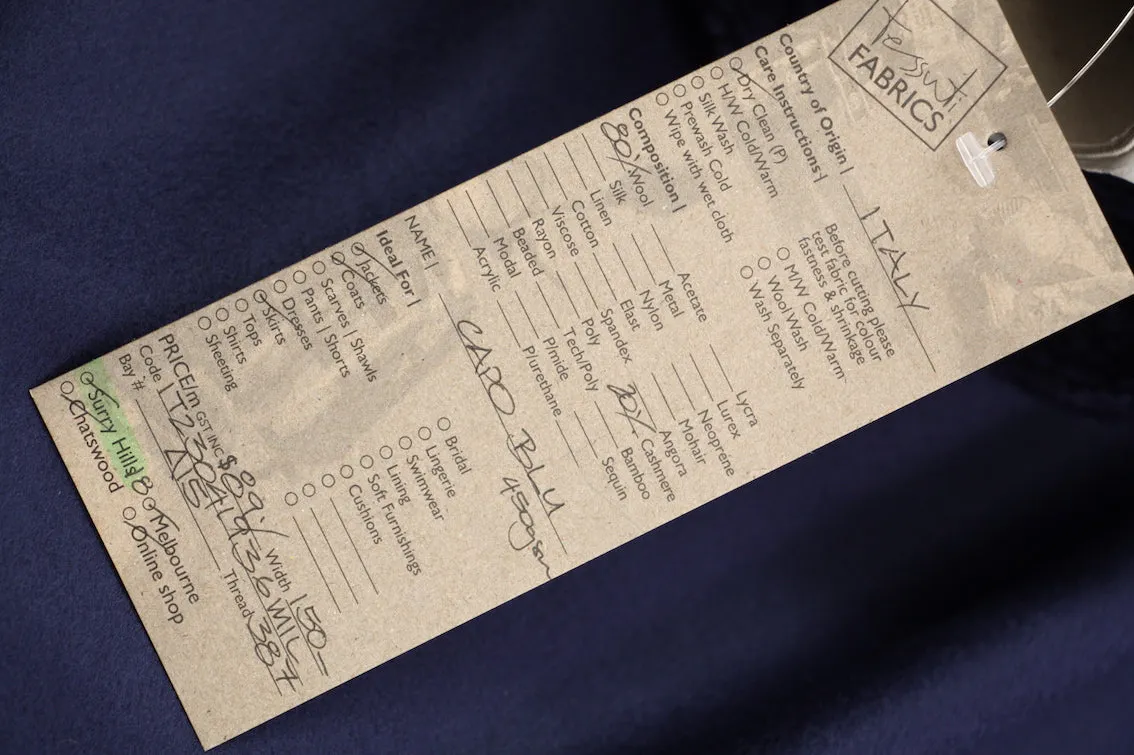 Tessuti
FABRICS
Country of Origin | ITALY
Care Instructions |
Dry Clean (P)
H/W Cold/Warm
Silk Wash
Prewash Cold
Wipe with wet cloth
Before cutting please
test fabric for colour
fastness & shrinkage
M/W Cold/Warm
Wool Wash
Wash Separately
Composition |
80% Wool
Silk
Linen
Cotton
Viscose
Rayon
Beaded
Modal
Acrylic
Acetate
Metal
Nylon
Elast
Spandex
Poly
Tech/Poly
P/mide
P/urethane
Lycra
Lurex
Neoprene
Mohair
Angora
20% Cashmere
Bamboo
Sequin
NAME | CAPO BLU
450gsm
Ideal For |
Jackets
Coats
Scarves | Shawls
Pants | Shorts
Dresses
Skirts
Tops
Shirts
Sheeting
Bridal
Lingerie
Swimwear
Lining
Soft Furnishings
Cushions
PRICE/m GST INC $89 Width 150
Code IT230419
Bay # A15 Thread 387
Surry Hills
Melbourne
Chatswood
Online shop